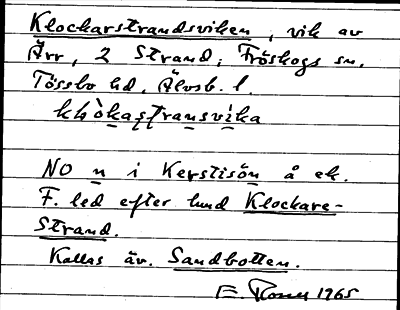 Klockarstrandsviken, vik av
Ärr, 2 Strand, Fröskogs sn,
Tössbo hd, Älvsb. l.
klòkastransvika
NO n i Kerstisön å ek.
F. led efter lund Klockare-
Strand.
Kallas äv. Sandbotten.
E. 1965